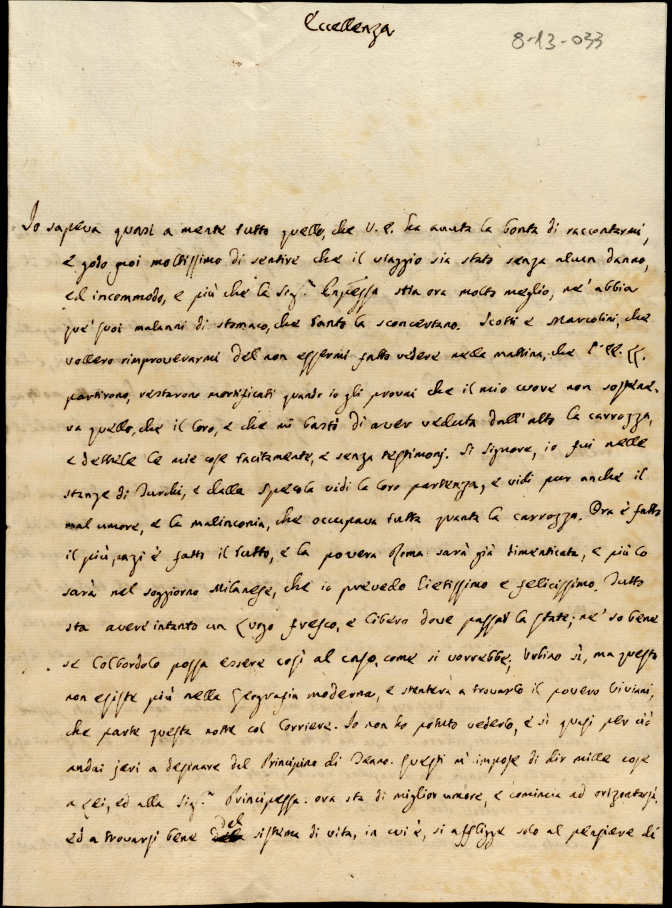 Eccellenza
8-13-033
Io sapeva quasi a mente tutto quello, che V. E. ha avuta la bontà di raccontarmi,
e godo poi moltissimo di sentire che il viaggio sia stato senza alcun danno,
ed incommodo, e più che la Sig.ra stia ora molto meglio, ne' abbia
que' suoi malanni di stomaco, che tanto la sconcertano. Scotti e Marcolini, che
vollero rimproverarmi del non essermi fatto vedere nella mattina, che l'EE. LL.
partirono, restarono mortificati quando io gli provai che il mio cuore non sostene-
va quello, che il loro, e che mi bastò di aver veduta dall'alto la carrozza,
e dettele le mie cose tacitamente, e senza testimonj. Sì Signore, io fui nelle
stanze di Turchi, e dalla Specola vidi la loro partenza, e vidi pur anche il
mal umore, e la malinconia, che occupava tutta quanta la carrozza. Ora è fatto
il più, anzi è fatto il tutto, e la povera Roma sarà già dimenticata, e più lo
sarà nel soggiorno Milanese, che io prevedo lietissimo e felicissimo. Tutto
sta avere intanto un luogo fresco, e libero dove passar la state; ne' so bene
se Colbordolo possa essere così al caso, come si vorrebbe; Urbino sì, ma questo
non esiste più nella Geografia moderna, e stenterà a trovarlo il povero Viviani,
che parte questa notte col Corriere. Io non ho potuto vederlo, e sì quasi per ciò
andai jeri a desinare dal Principino di Teano. Questi m'impose di dir mille cose
a Lei, ed alla Sig.ra Principessa: ora sta di miglior umore, e comincia ad orizontarsi,
ed a trovarsi bene del sistema di vita, in cui è, si affligge solo al pensiere di